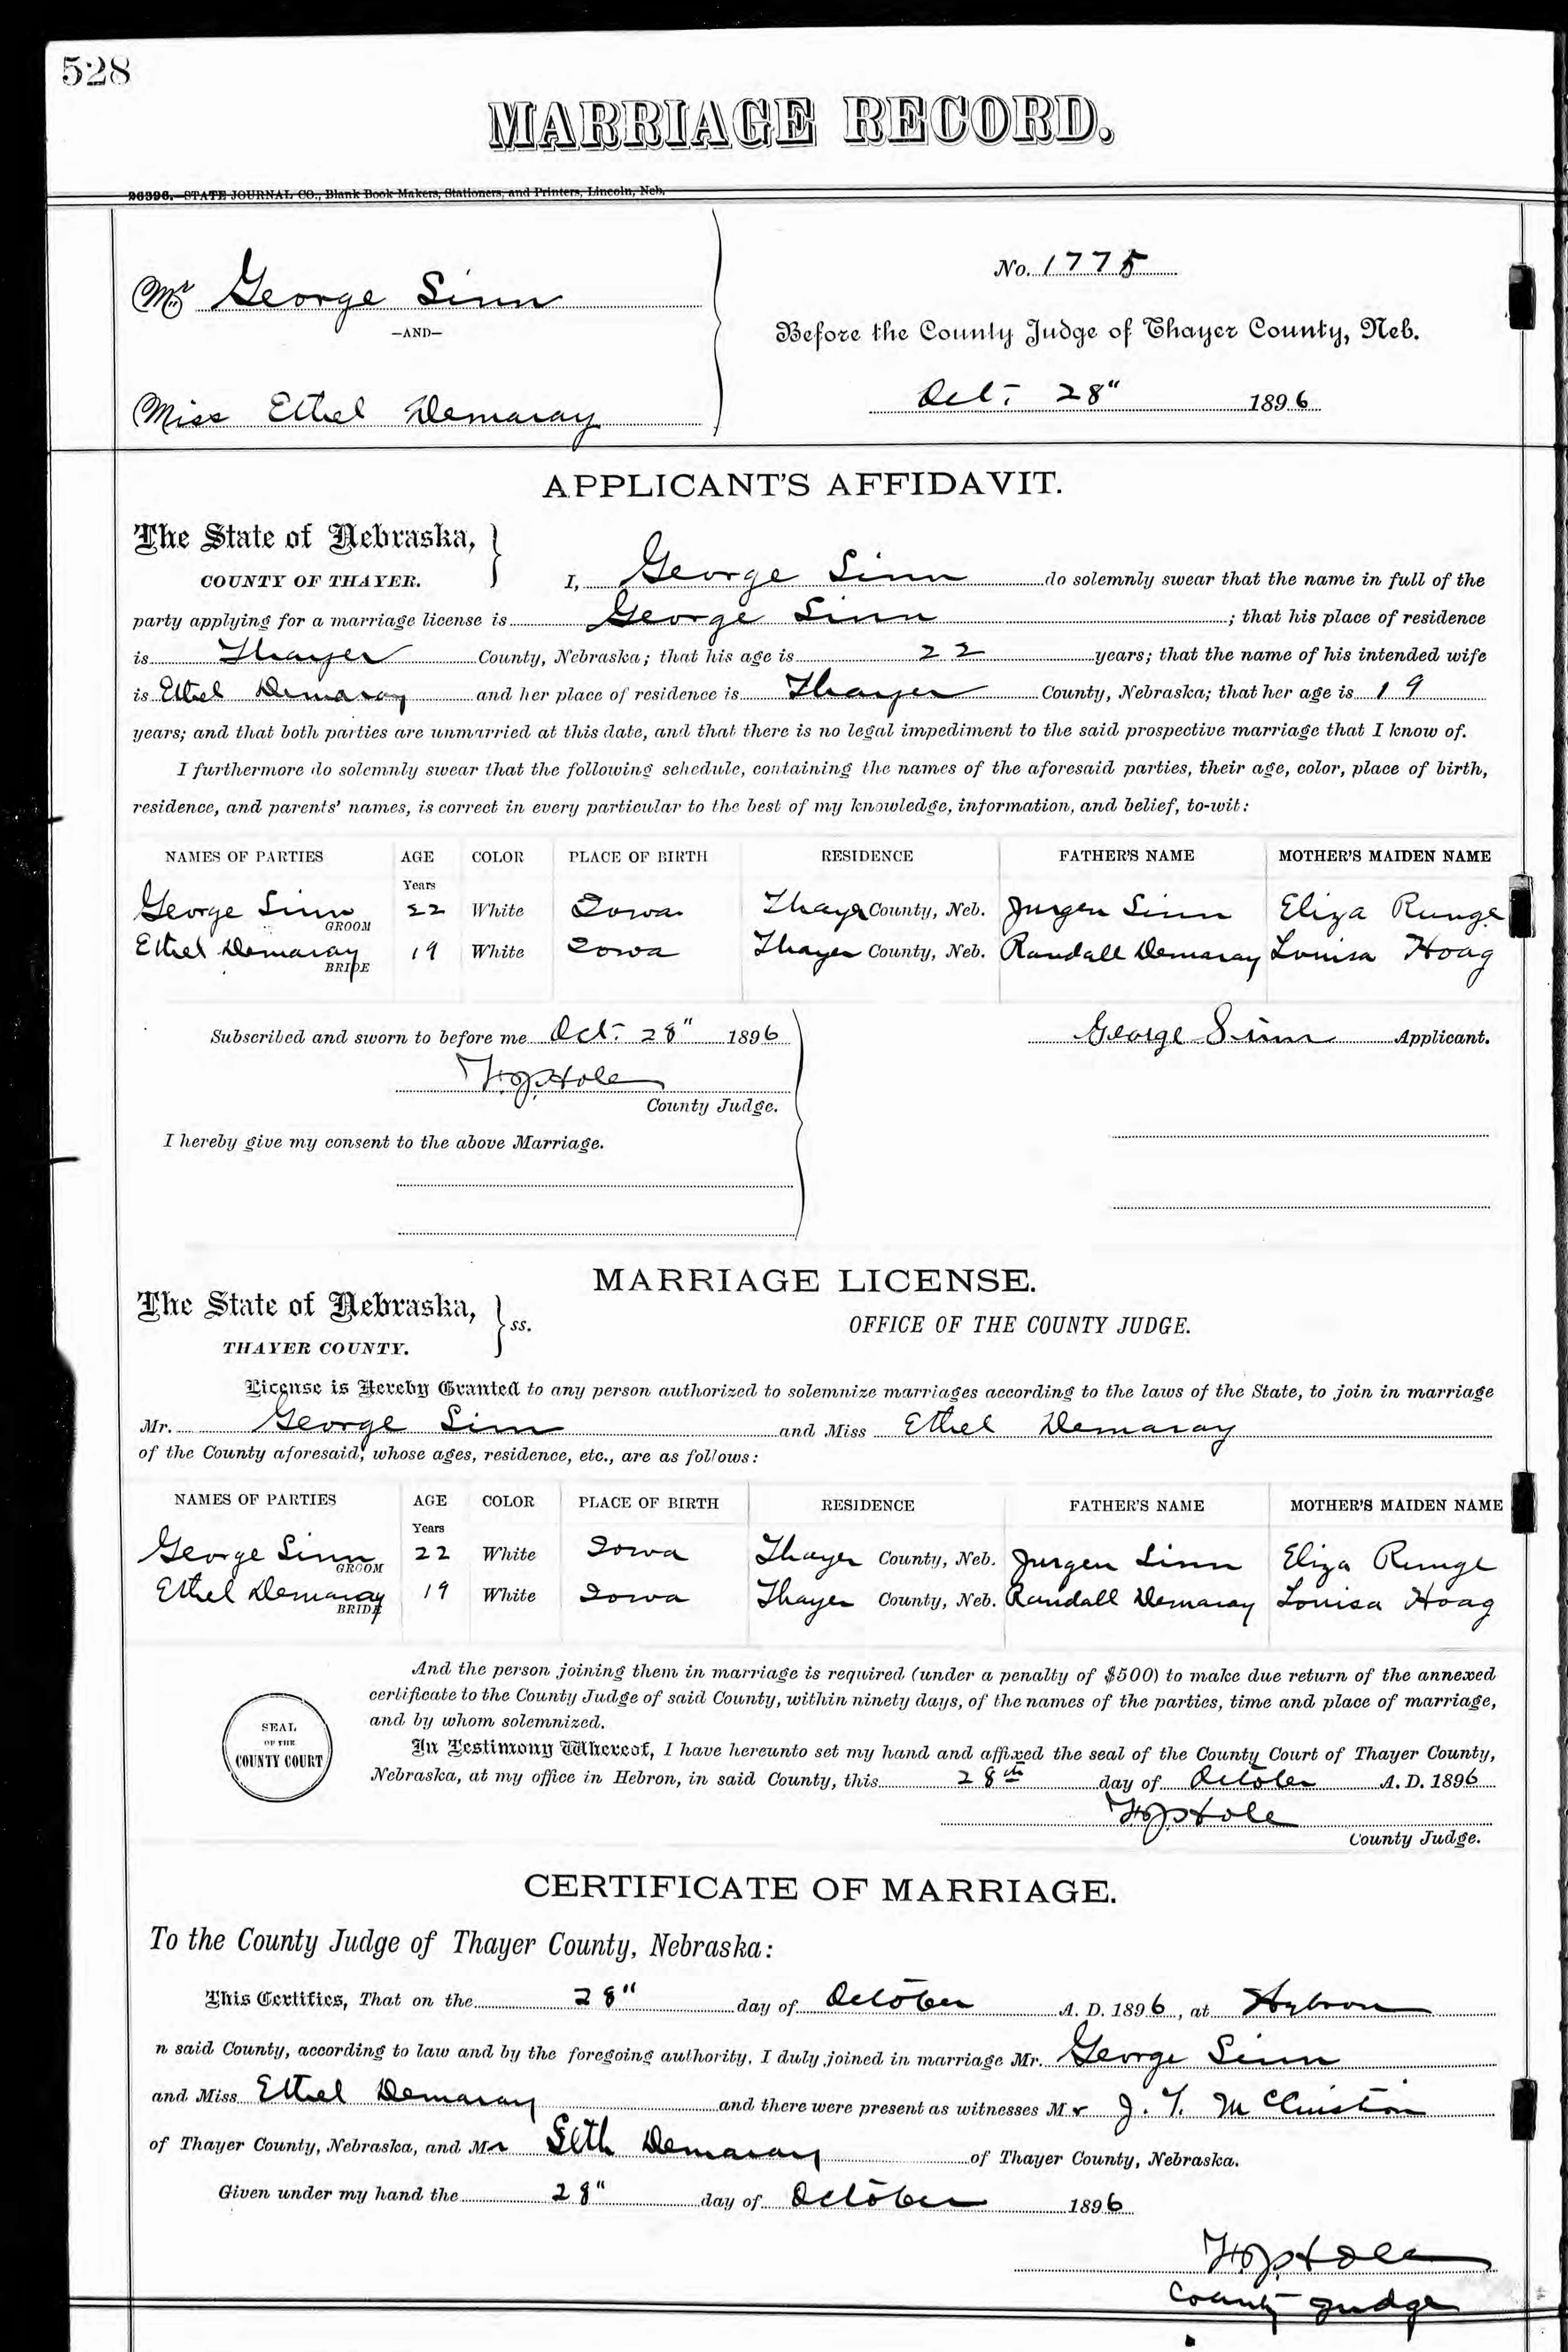 528
MARRIAGE RECORD.
26396.—STATE JOURNAL CO., Blank Book Makers, Stationers, and Printers, Lincoln, Neb.
Mr George Sinn
—AND—
Miss Ethel Demaray
No. 1775
Before the County Judge of Thayer County, Neb.
Oct. 28" 1896
APPLICANT'S AFFIDAVIT.
The State of Nebraska, }
COUNTY OF THAYER.
I, George Sinn do solemnly swear that the name in full of the
party applying for a marriage license is George Sinn ; that his place of residence
is Thayer County, Nebraska; that his age is 22 years; that the name of his intended wife
is Ethel Demaray and her place of residence is Thayer County, Nebraska; that her age is 19
years; and that both parties are unmarried at this date, and that there is no legal impediment to the said prospective marriage that I know of.
I furthermore do solemnly swear that the following schedule, containing the names of the aforesaid parties, their age, color, place of birth,
residence, and parents' names, is correct in every particular to the best of my knowledge, information, and belief, to-wit:
NAMES OF PARTIES AGE COLOR PLACE OF BIRTH RESIDENCE FATHER'S NAME MOTHER'S MAIDEN NAME
Years
George Sinn GROOM 22 White Iowa Thayer County, Neb. Jurgen Sinn Eliza Runge
Ethel Demaray BRIDE 19 White Iowa Thayer County, Neb. Randall Demaray Louisa Hoag
Subscribed and sworn to before me Oct. 28" 1896
George Sinn Applicant.
Hole
County Judge.
I hereby give my consent to the above Marriage.
MARRIAGE LICENSE.
The State of Nebraska, } ss.
THAYER COUNTY.
OFFICE OF THE COUNTY JUDGE.
License is Hereby Granted to any person authorized to solemnize marriages according to the laws of the State, to join in marriage
Mr. George Sinn and Miss Ethel Demaray
of the County aforesaid, whose ages, residence, etc., are as follows:
NAMES OF PARTIES AGE COLOR PLACE OF BIRTH RESIDENCE FATHER'S NAME MOTHER'S MAIDEN NAME
Years
George Sinn GROOM 22 White Iowa Thayer County, Neb. Jurgen Sinn Eliza Runge
Ethel Demaray BRIDE 19 White Iowa Thayer County, Neb. Randall Demaray Louisa Hoag
And the person joining them in marriage is required (under a penalty of $500) to make due return of the annexed
certificate to the County Judge of said County, within ninety days, of the names of the parties, time and place of marriage,
and by whom solemnized.
SEAL
OF THE
COUNTY COURT
In Testimony Whereof, I have hereunto set my hand and affixed the seal of the County Court of Thayer County,
Nebraska, at my office in Hebron, in said County, this 28th day of October A. D. 1896
Hole
County Judge.
CERTIFICATE OF MARRIAGE.
To the County Judge of Thayer County, Nebraska:
This Certifies, That on the 28" day of October A. D. 1896, at Hebron
n said County, according to law and by the foregoing authority, I duly joined in marriage Mr. George Sinn
and Miss Ethel Demaray and there were present as witnesses Mr J. T. McClintion
of Thayer County, Nebraska, and Mr Seth Demaray of Thayer County, Nebraska.
Given under my hand the 28" day of October 1896
Hole
County Judge